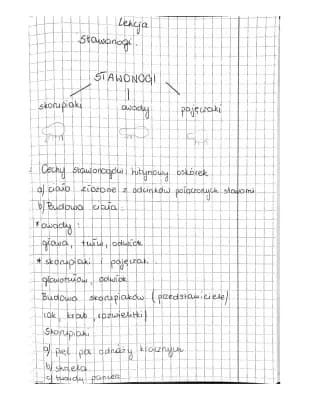 Lekcja
Stawonogi.
STAWONOGI
skorupiaki owady pajęczaki
Cechy stawonogów: hitynowy oskórek
a) ciało złożone z odcinków połączonych stawami
b) Budowa ciała:
* owady:
głowa, tułw, odwłok
* skorupiaki i pajęczaki
głowotułów, odwłok
Budowa skorupiaków (przedstawiciele)
rak, krab, rozwielitki)
Skorupiaki
a) pięć par odnóży krocznych
b) skrzela
c) twardy pancerz